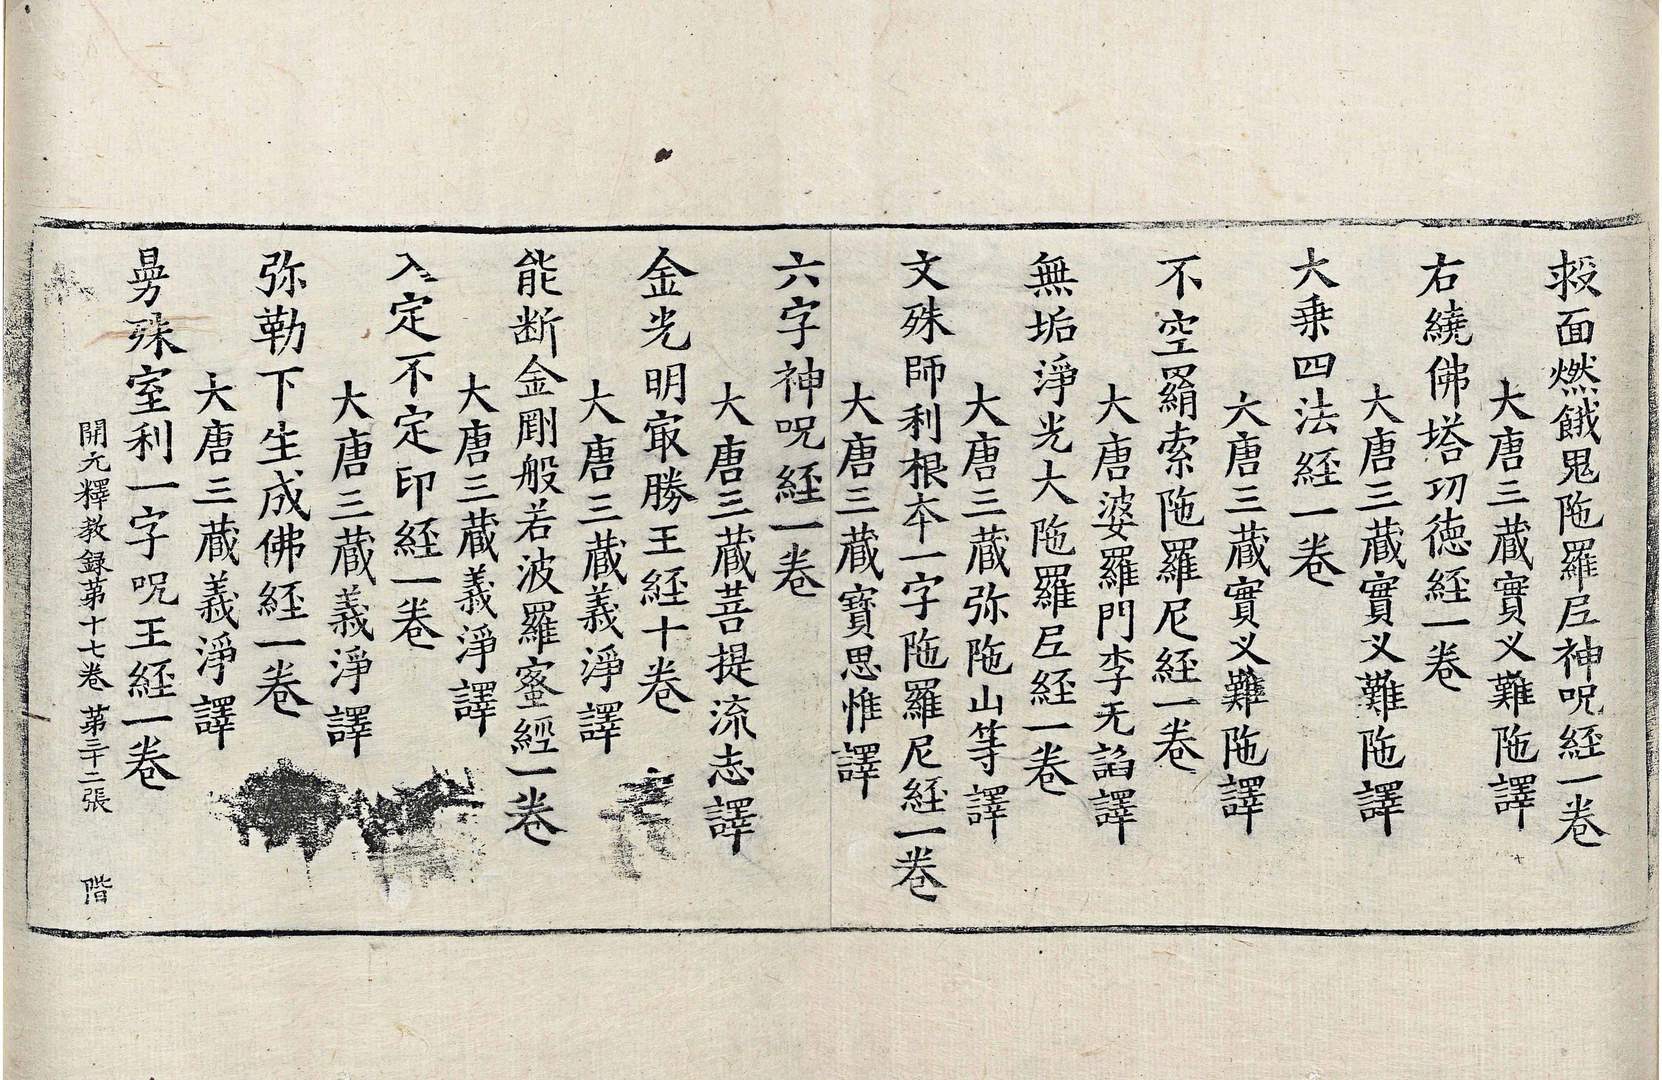 救面燃餓鬼陁羅尼神呪経一卷
大唐三藏實叉難陁譯
右繞佛塔功德経一卷
大唐三藏實叉難陁譯
大乗四法経一卷
大唐三藏實叉難陁譯
不空羂索陁羅尼経一卷
大唐婆羅門李无諂譯
無垢淨光大陁羅尼経一卷
大唐三藏弥陁山等譯
文殊師利根本一字陁羅尼経一卷
大唐三藏寶思惟譯
六字神呪経一卷
大唐三藏菩提流志譯
金光明㝡勝王経十卷
大唐三藏義淨譯
能断金剛般若波羅蜜經一卷
大唐三藏義淨譯
入定不定印経一卷
大唐三藏義淨譯
弥勒下生成佛経一卷
大唐三藏義淨譯
曼殊室利一字呪王経一卷
開元釋教録苐十七卷 苐三十二張 階